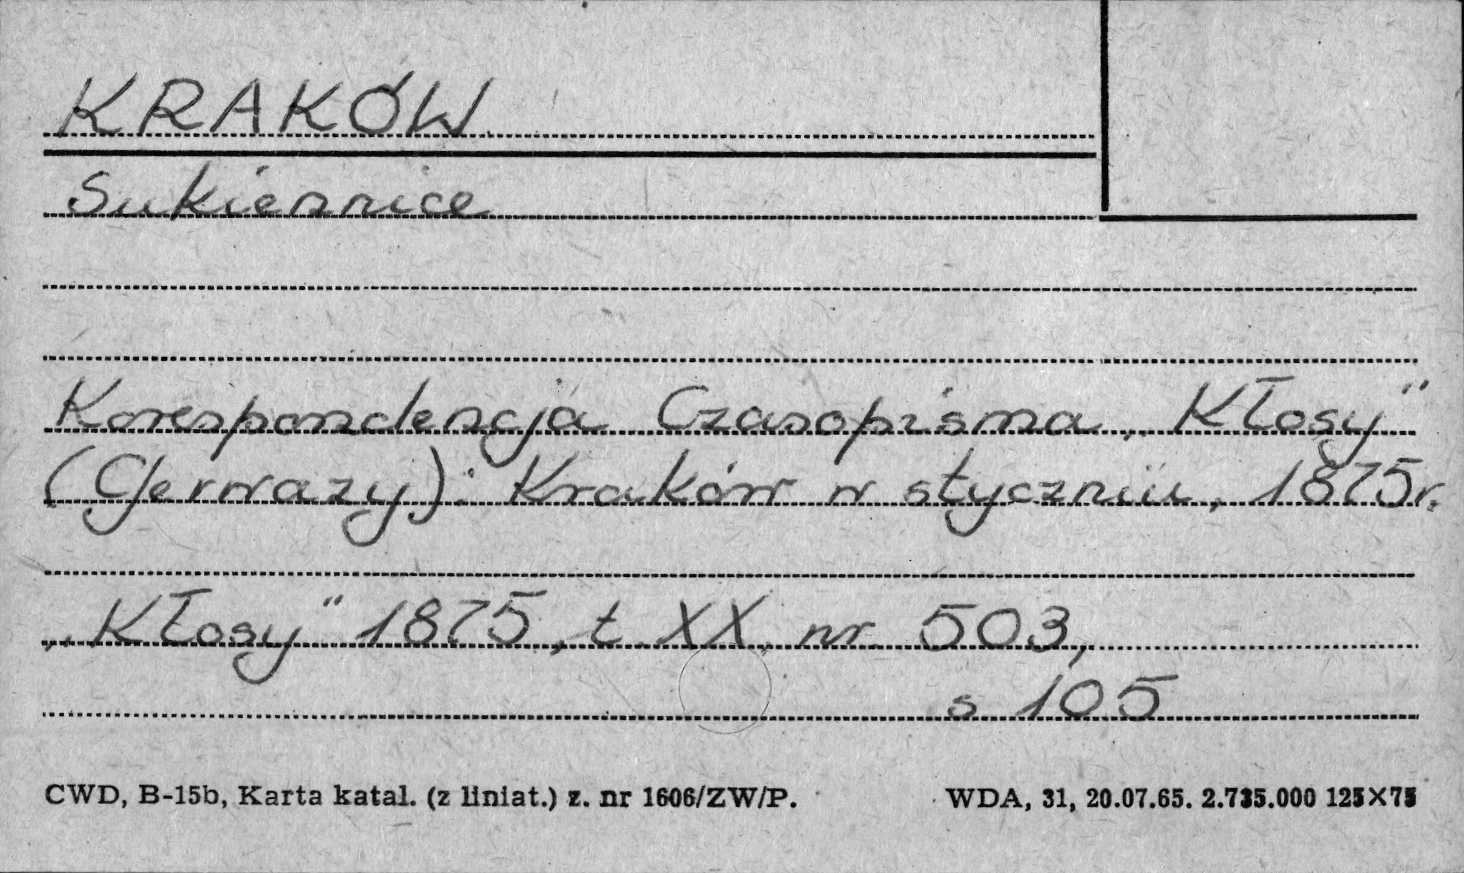 KRAKÓW
Sukiennice
Korespondencja Czasopisma „Kłosy"
(Gerwazy): Kraków w styczniu, 1875r.
„Kłosy" 1875, t. XX, nr. 503,
s 105
CWD, B-15b, Karta katal. (z liniat.) z. nr 1606/ZW/P.
WDA, 31, 20.07.65. 2.735.000 125×75